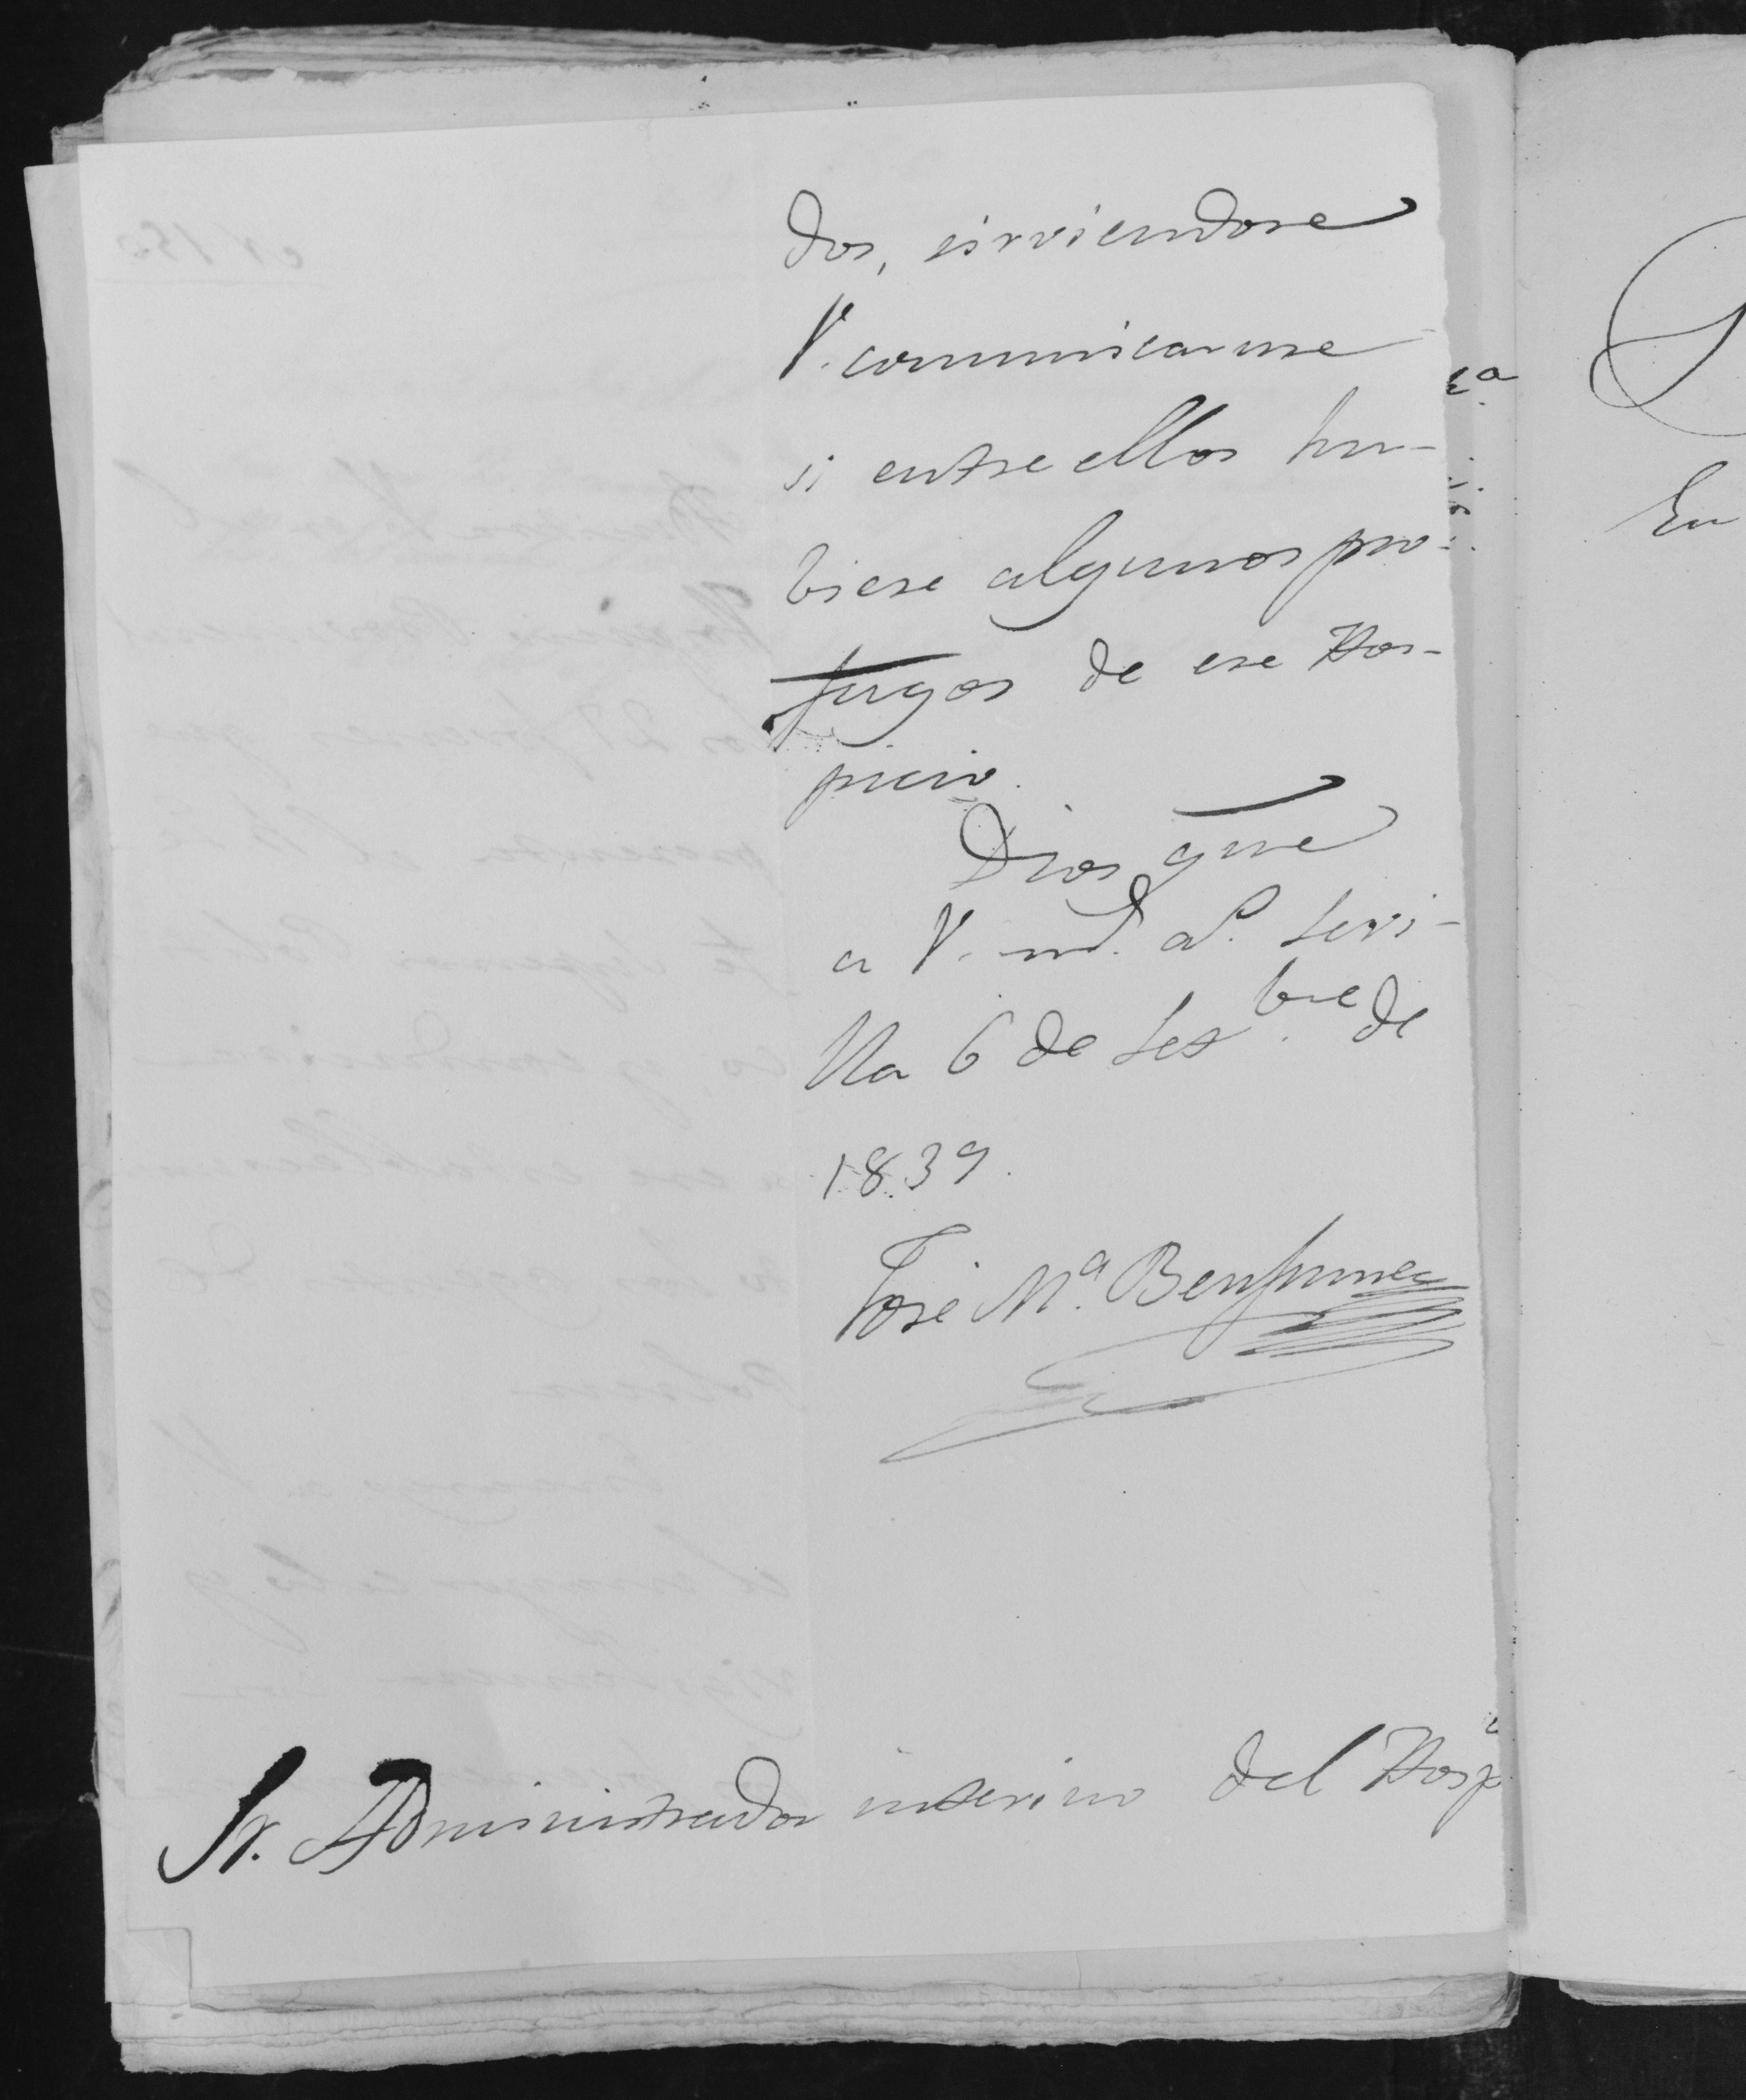 dos, sirviendose
V. comunicarme
si entre ellos hu-
biese algunos pro-
fugos de ese Hos-
picio.
Dios gue
a V. md. as. Sevi-
lla 6 de Setbre. de
1839.
José Ma. Benjumea
Sr. Administrador interino del Hospo
En